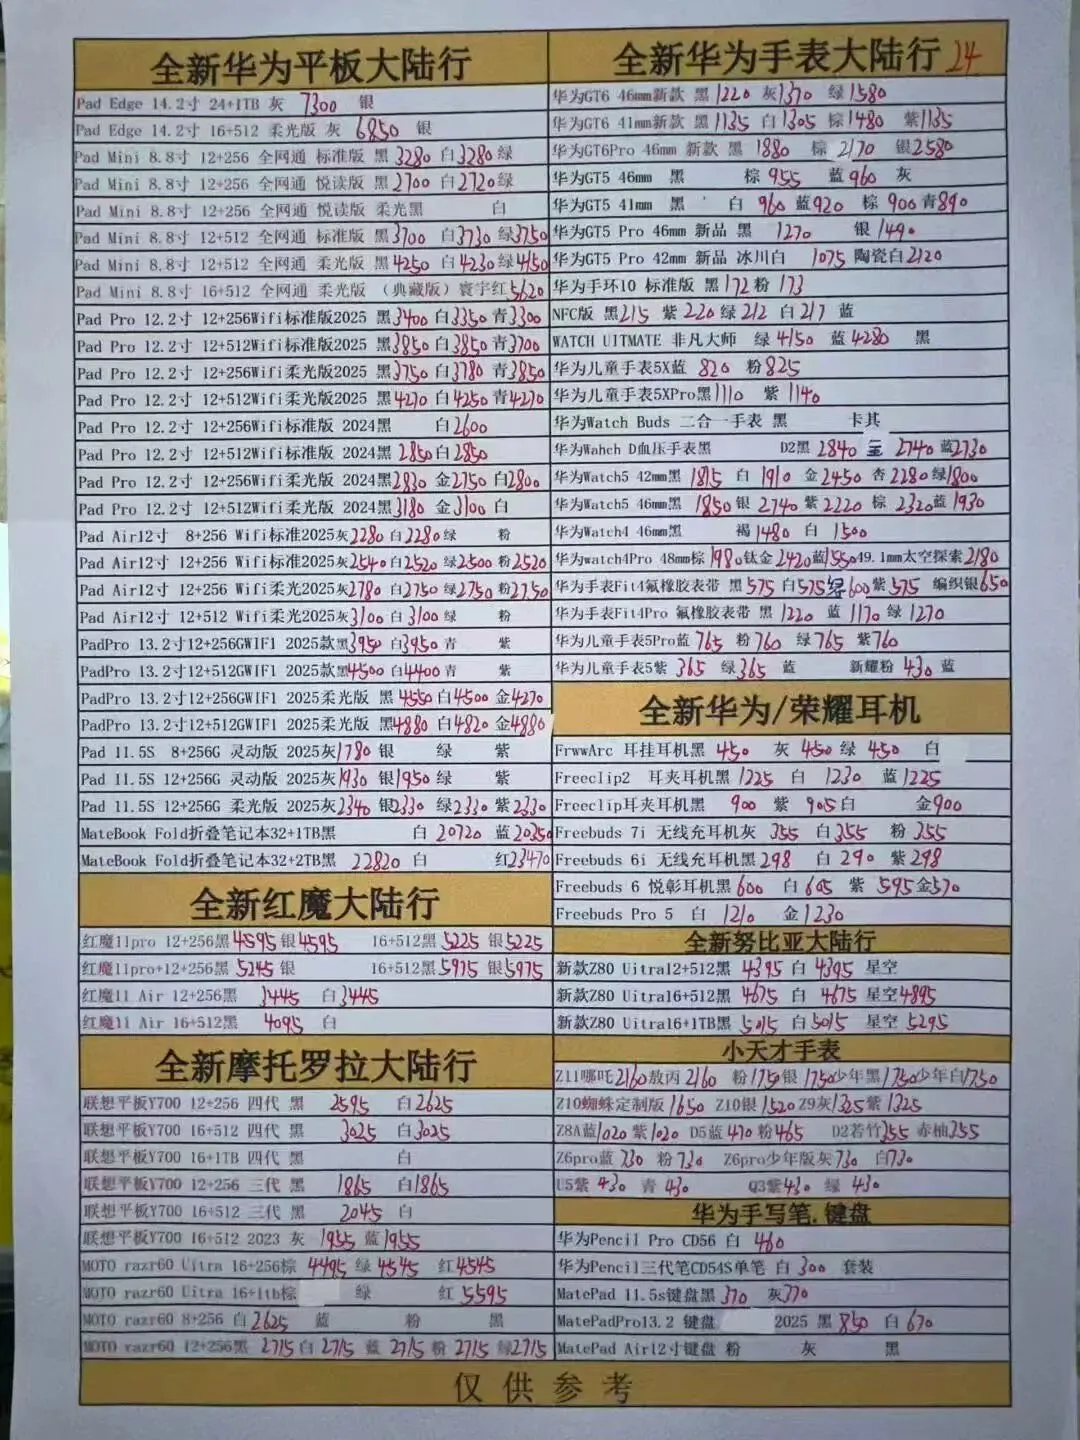 全新华为平板大陆行
Pad Edge 14.2寸 24+1TB 灰 7300 银
Pad Edge 14.2寸 16+512 柔光版 灰 6850 银
Pad Mini 8.8寸 12+256 全网通 标准版 黑3280 白3280绿
Pad Mini 8.8寸 12+256 全网通 悦读版 黑2700 白2720绿
Pad Mini 8.8寸 12+256 全网通 悦读版 柔光黑 白
Pad Mini 8.8寸 12+512 全网通 标准版 黑3700 白3730绿3750
Pad Mini 8.8寸 12+512 全网通 柔光版 黑4250 白4230绿4150
Pad Mini 8.8寸 16+512 全网通 柔光版 (典藏版) 寰宇红5620
Pad Pro 12.2寸 12+256Wifi标准版2025 黑3400 白3350青3300
Pad Pro 12.2寸 12+512Wifi标准版2025 黑3850白3850青3700
Pad Pro 12.2寸 12+256Wifi柔光版2025 黑3750白3780青3850
Pad Pro 12.2寸 12+512Wifi柔光版2025 黑4270白4250青4270
Pad Pro 12.2寸 12+256Wifi标准版 2024黑 白2600
Pad Pro 12.2寸 12+512Wifi标准版 2024黑2850白2850
Pad Pro 12.2寸 12+256Wifi柔光版 2024黑2830 金2750白2800
Pad Pro 12.2寸 12+512Wifi柔光版 2024黑3180 金3100白
Pad Air12寸 8+256 Wifi标准2025灰2280白2280绿 粉
Pad Air12寸 12+256 Wifi标准2025灰2540白2520绿2500粉2520
Pad Air12寸 12+256 Wifi柔光2025灰2780白2750绿2750粉2750
Pad Air12寸 12+512 Wifi柔光2025灰3100白3100绿 粉
PadPro 13.2寸12+256GWIF1 2025款黑3950白3950青 紫
PadPro 13.2寸12+512GWIF1 2025款黑4500白4400青 紫
PadPro 13.2寸12+256GWIF1 2025柔光版 黑4550白4500金4270
PadPro 13.2寸12+512GWIF1 2025柔光版 黑4880白4820金4880
Pad 11.5S 8+256G 灵动版 2025灰1780银 绿 紫
Pad 11.5S 12+256G 灵动版 2025灰1930银1950绿 紫
Pad 11.5S 12+256G 柔光版 2025灰2340银2330 绿2330紫2330
MateBook Fold折叠笔记本32+1TB黑 白 20720 蓝20350
MateBook Fold折叠笔记本32+2TB黑 22820 白 红23470
全新红魔大陆行
红魔11pro 12+256黑4595银4595 16+512黑5225银5225
红魔11pro+12+256黑5245银 16+512黑5975银5975
红魔11 Air 12+256黑 3445 白3445
红魔11 Air 16+512黑 4095 白
全新摩托罗拉大陆行
联想平板Y700 12+256 四代 黑 2595 白2625
联想平板Y700 16+512 四代 黑 3025 白3025
联想平板Y700 16+1TB 四代 黑 白
联想平板Y700 12+256 三代 黑 1865 白1865
联想平板Y700 16+512 三代 黑 2045 白
联想平板Y700 16+512 2023 灰 1955蓝1955
MOTO razr60 Uitra 16+256棕 4495绿4545 红4545
MOTO razr60 Uitra 16+1tb棕 绿 红5595
MOTO razr60 8+256 白2625 蓝 粉 黑
MOTO razr60 12+256黑 2715白2715 蓝2715粉2715绿2715
全新华为手表大陆行 24
华为GT6 46mm新款 黑1220 灰1370 绿1580
华为GT6 41mm新款 黑1135 白1305棕1480 紫1135
华为GT6Pro 46mm 新款 黑 1880 棕 2170 银2580
华为GT5 46mm 黑 棕 955 蓝960 灰
华为GT5 41mm 黑 白 960蓝920 棕 900青890
华为GT5 Pro 46mm 新品 黑 1270 银 1490
华为GT5 Pro 42mm 新品 冰川白 1075 陶瓷白2120
华为手环10 标准版 黑172粉 173
NFC版 黑215 紫220绿212 白217 蓝
WATCH UITMATE 非凡大师 绿4150 蓝4280 黑
华为儿童手表5X蓝 820 粉825
华为儿童手表5XPro黑1110 紫 1140
华为Watch Buds 二合一手表 黑 卡其
华为Wahch D血压手表黑 D2黑 2840 2740蓝2730
华为Watch5 42mm黑 1815 白 1910 金2450 杏2280绿1800
华为Watch5 46mm黑 1850银 2740紫2220 棕 2320蓝1930
华为Watch4 46mm黑 褐1480 白 1500
华为watch4Pro 48mm棕1980钛金2420蓝155049.1mm太空探索2180
华为手表Fit4氟橡胶表带 黑575白575绿600紫575 编织银650
华为手表Fit4Pro 氟橡胶表带 黑1220 蓝 1170绿 1270
华为儿童手表5Pro蓝765 粉760 绿765 紫760
华为儿童手表5紫 365 绿365 蓝 新耀粉 430 蓝
全新华为/荣耀耳机
FrwwArc 耳挂耳机黑 450 灰 450绿 450 白
Freeclip2 耳夹耳机黑1225 白 1230 蓝1225
Freeclip耳夹耳机黑 900 紫 905白 金900
Freebuds 7i 无线充耳机灰 355 白355 粉 355
Freebuds 6i 无线充耳机黑298 白 290 紫298
Freebuds 6 悦彰耳机黑600 白605 紫 595金570
Freebuds Pro 5 白 1210 金1230
全新努比亚大陆行
新款Z80 Uitra12+512黑 4395白 4395 星空
新款Z80 Uitra16+512黑 4675 白 4675 星空4895
新款Z80 Uitra16+1TB黑 5015 白5015 星空 5295
小天才手表
Z11哪吒2160敖丙2160 粉1750银1750少年黑1750少年白1750
Z10蜘蛛定制版1650 Z10银1520Z9灰1325紫1325
Z8A蓝1020紫1020 D5蓝470粉465 D2若竹355赤柚355
Z6pro蓝730 粉730 Z6pro少年版灰730 白730
U5紫430 青430 Q3紫430 绿 430
华为手写笔.键盘
华为Pencil Pro CD56 白 460
华为Pencil三代笔CD54S单笔 白300 套装
MatePad 11.5s键盘黑370 灰370
MatePadPro13.2 键盘 2025 黑850 白670
MatePad Air12寸键盘 粉 灰 黑
仅供参考